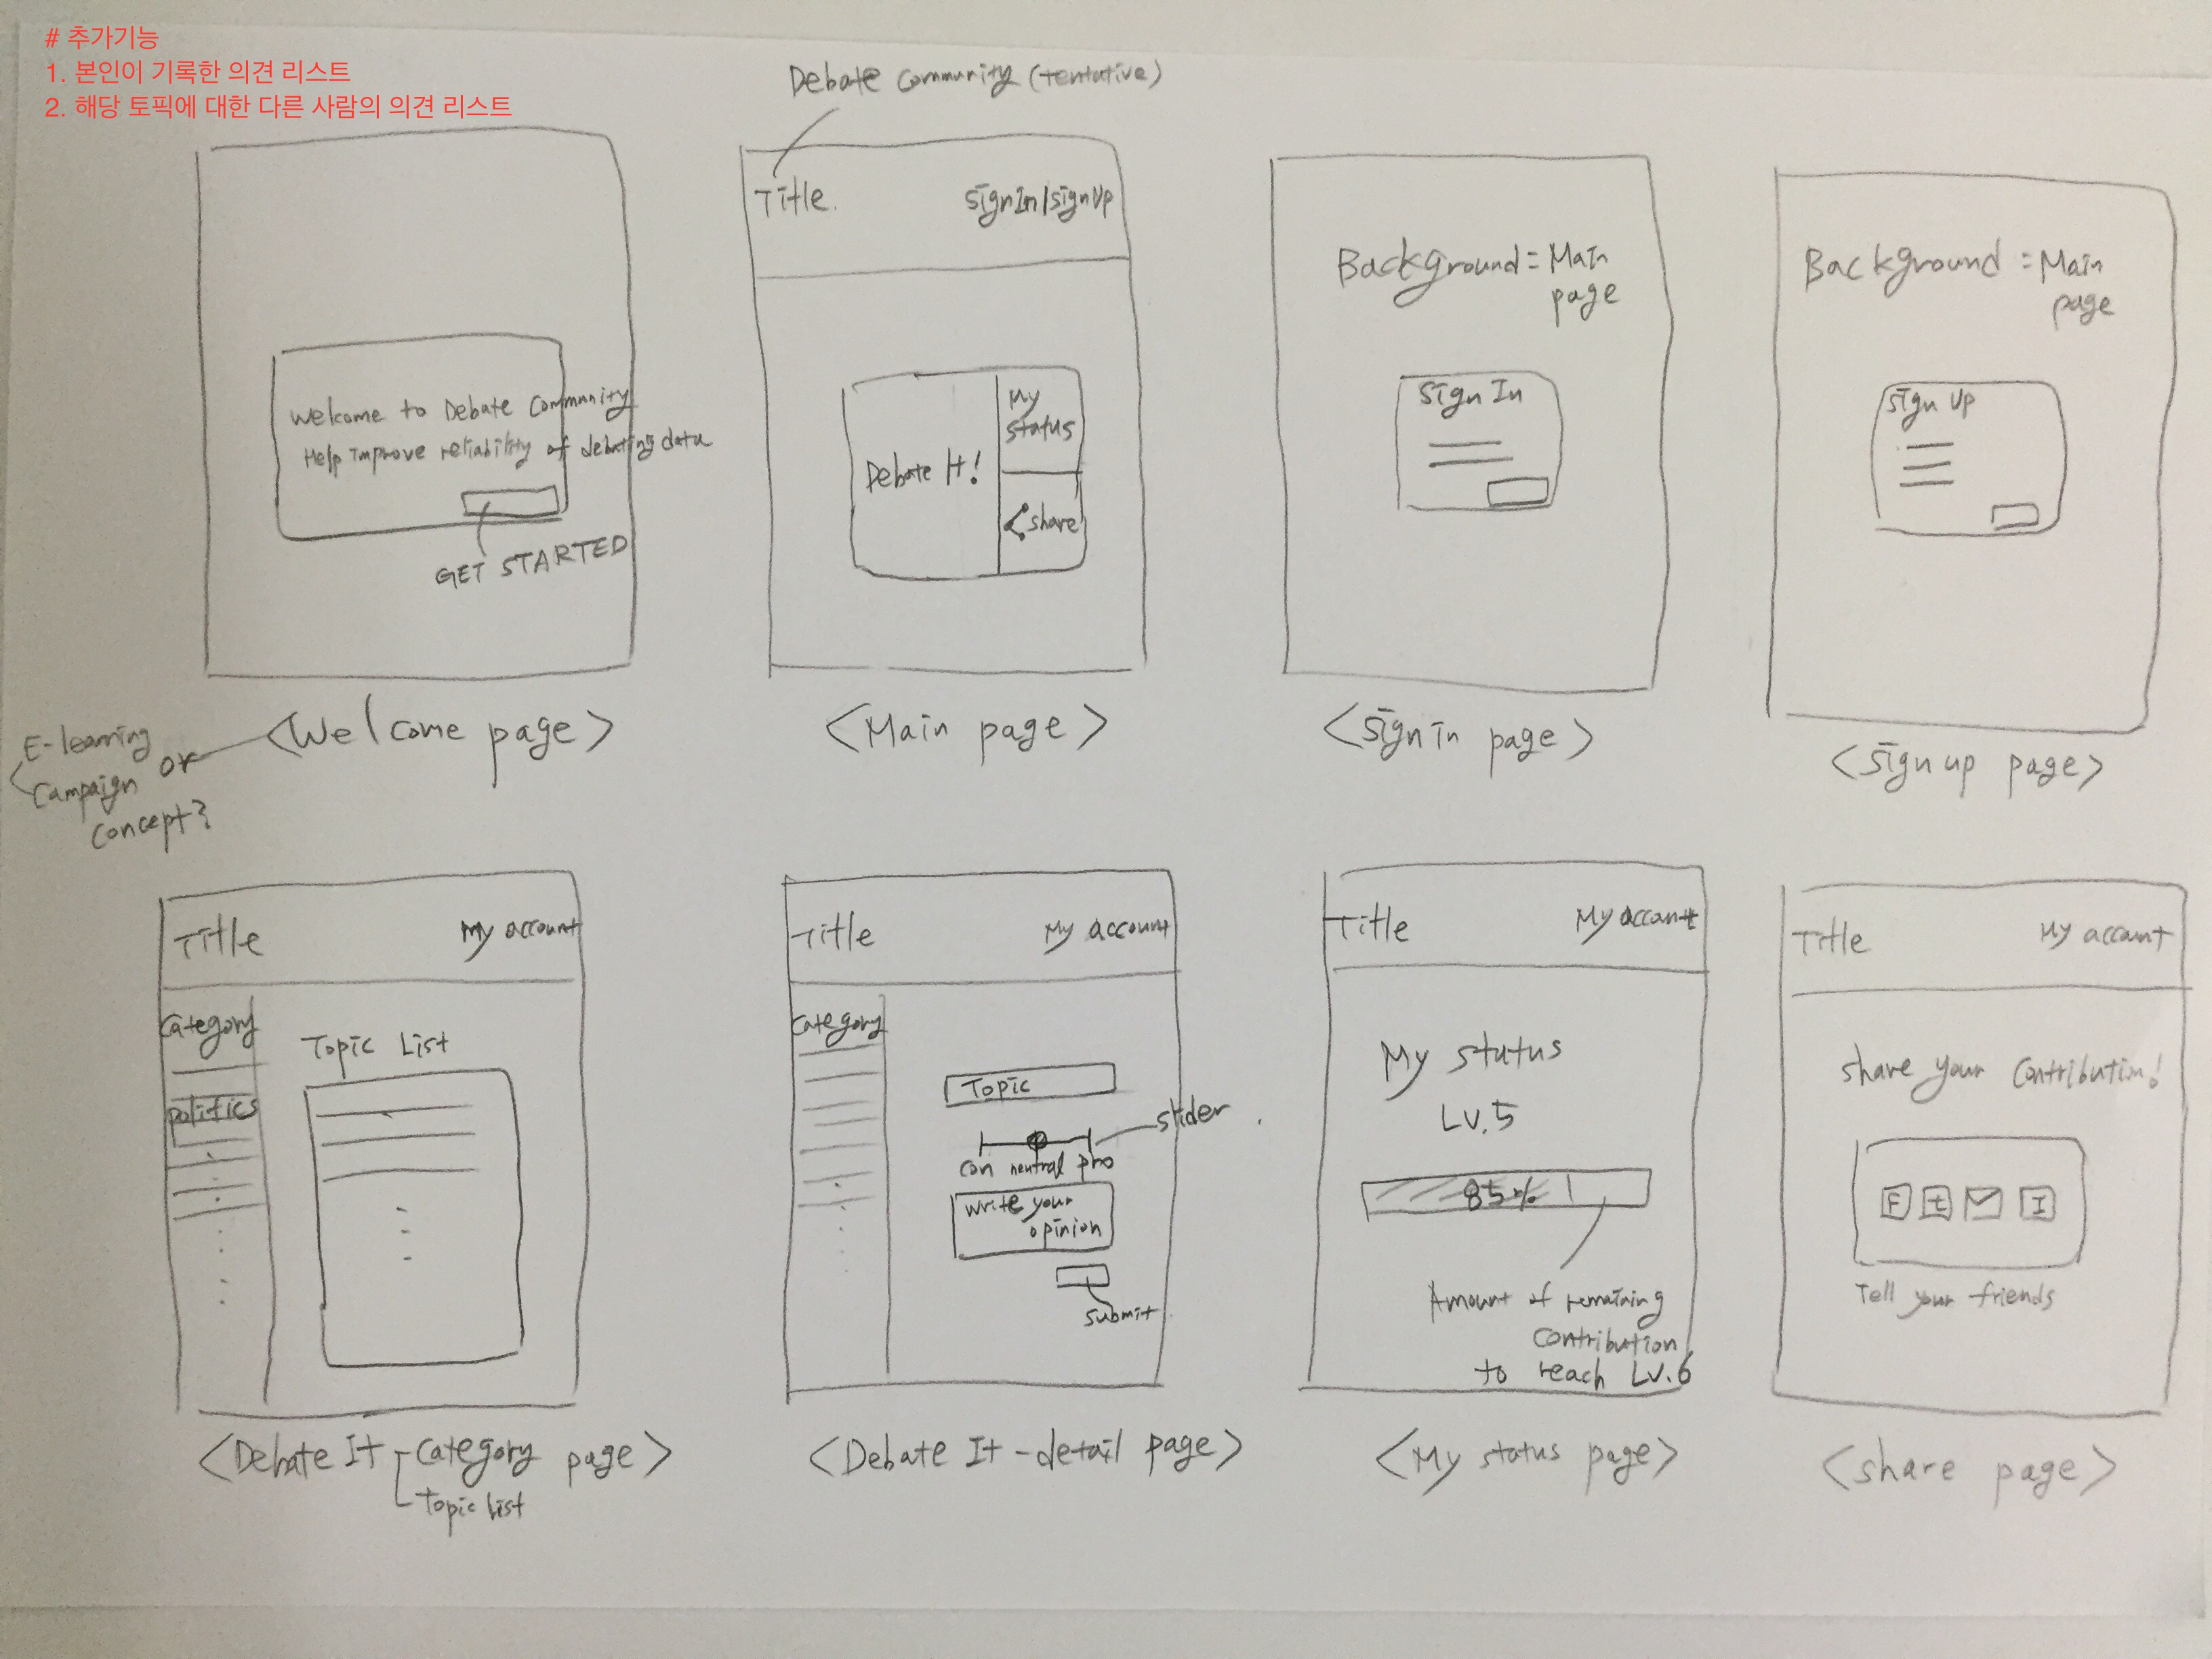 # 추가기능
1. 본인이 기록한 의견 리스트
2. 해당 토픽에 대한 다른 사람의 의견 리스트
Welcome to Debate Community
Help Improve reliability of debating data
GET STARTED
<Welcome page>
E-learning
or
Campaign
concept?
Debate Community (tentative)
Title.
Sign In/Sign Up
Debate It!
My
status
share
<Main page>
Background = Main
page
Sign In
<Sign in page>
Background = Main
page
Sign Up
<Sign up page>
Title
My account
Category
Politics
Topic List
<Debate It - Category page>
Topic list
Title
My account
Category
Topic
slider
con neutral pro
Write your
opinion
submit
<Debate It - detail page>
Title
My account
My status
LV.5
85%
Amount of remaining
contribution
to reach LV.6
<My status page>
Title
My account
Share your Contribution!
F t I
Tell your friends
<share page>